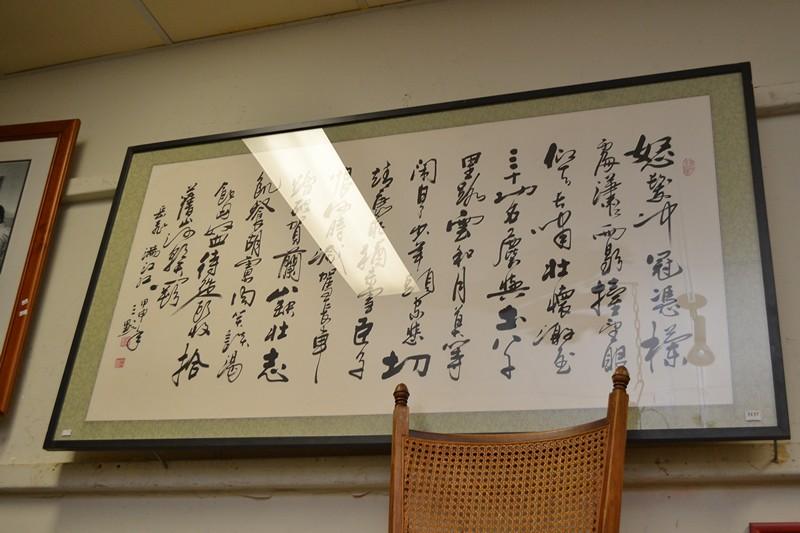 怒髮冲冠憑欄
處瀟瀟雨歇擡望眼
仰天長嘯壯懷激烈
三十功名塵與土八千
里路雲和月莫等
閒白了少年頭空悲切
靖康恥猶未雪臣子
恨何時滅駕長車
踏破賀蘭山缺壯志
飢餐胡虜肉笑談渴
飲匈奴血待從頭收拾
舊山河朝天闕
岳飛滿江紅
甲申年